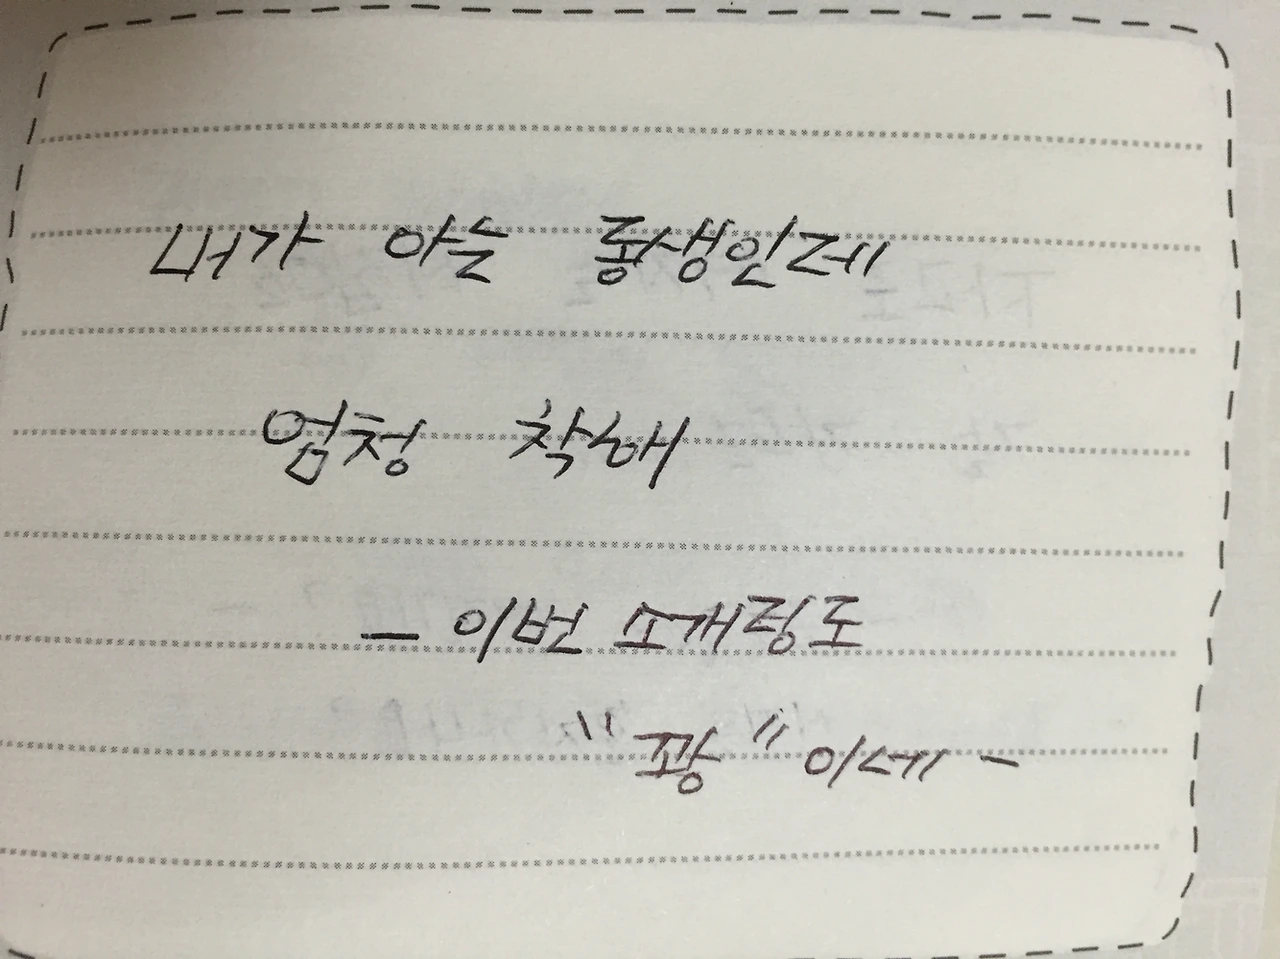 내가 아는 동생인데
엄청 착해
— 이번 소개팅도
"꽝" 이네 -